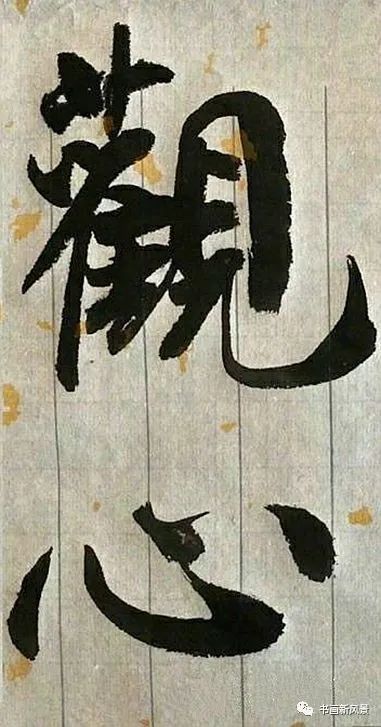 觀
心
书画新风景